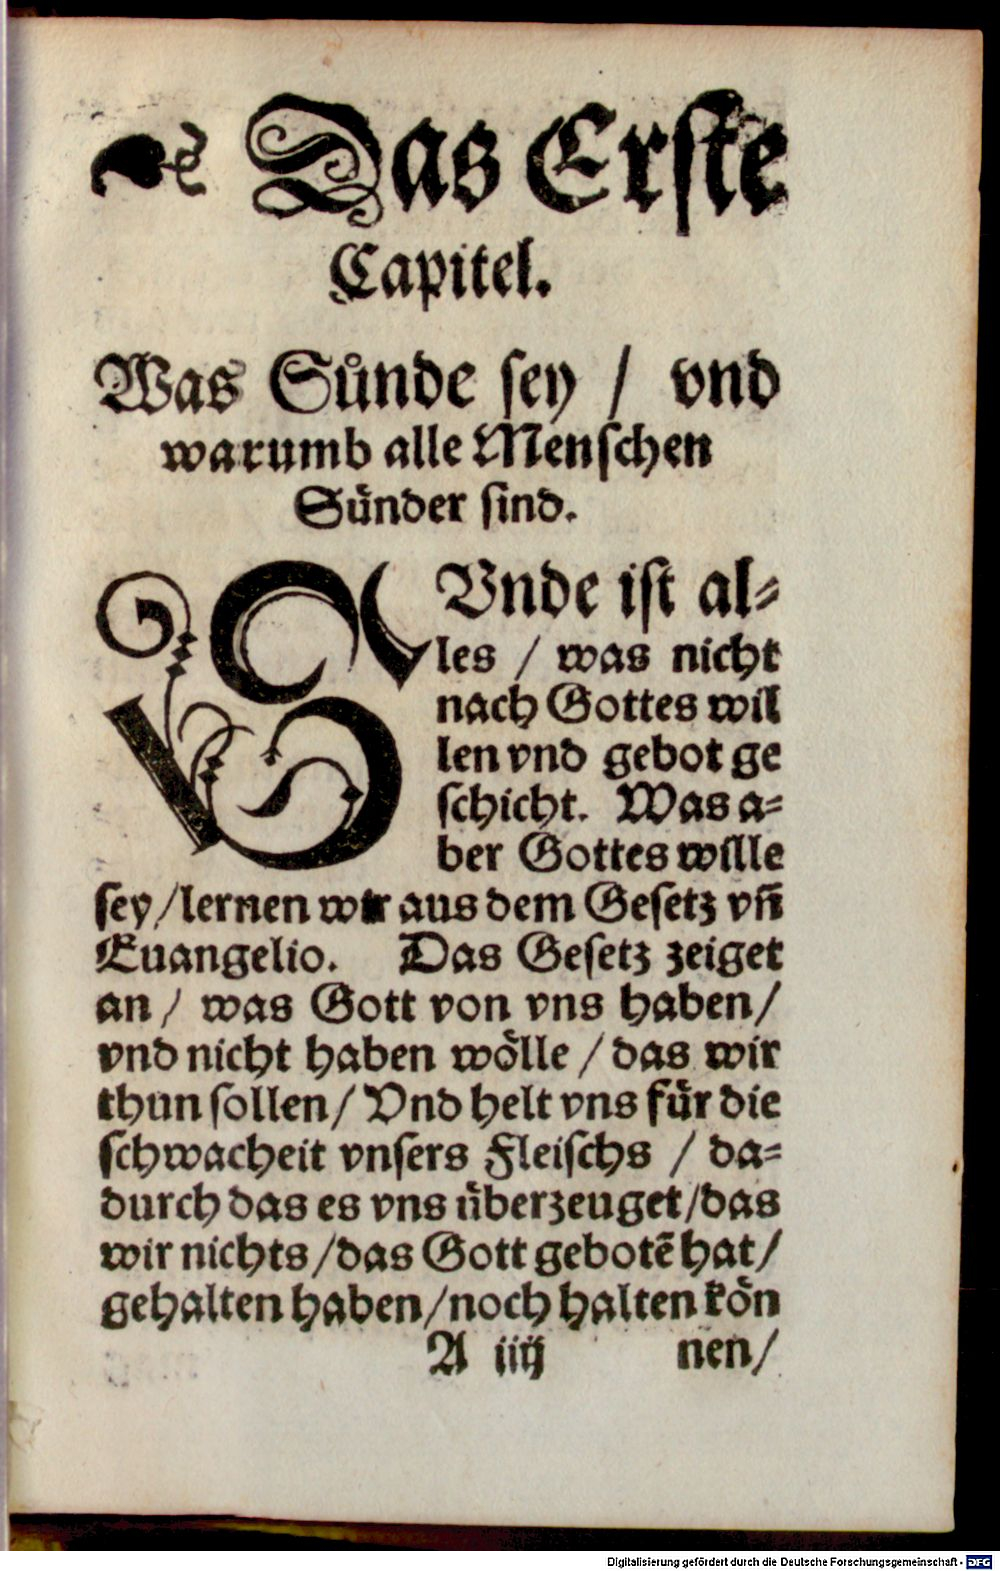 ❧ Das Erste
Capitel.
Was Sůnde sey / vnd
warumb alle Menschen
Sünder sind.
SVnde ist al⸗
les / was nicht
nach Gottes wil
len vnd gebot ge
schicht. Was a⸗
ber Gottes wille
sey / lernen wir aus dem Gesetz vñ
Euangelio. Das Gesetz zeiget
an / was Gott von vns haben /
vnd nicht haben wölle / das wir
thun sollen / Vnd helt vns für die
schwacheit vnsers Fleischs / da⸗
durch das es vns überzeuget / das
wir nichts / das Gott gebotẽ hat /
gehalten haben / noch halten kön
A iiij nen /
Digitalisierung gefördert durch die Deutsche Forschungsgemeinschaft - DFG